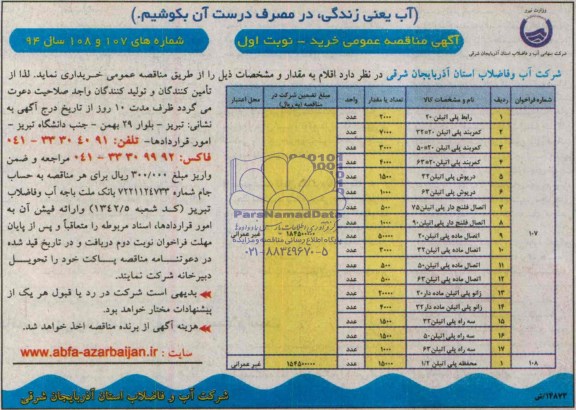 (آب یعنی زندگی، در مصرف درست آن بکوشیم.)
وزارت نیرو
شرکت سهامی آب و فاضلاب استان آذربایجان شرقی
آگهی مناقصه عمومی خرید - نوبت اول
شماره های ۱۰۷ و ۱۰۸ سال ۹۴
شرکت آب وفاضلاب استان آذربایجان شرقی در نظر دارد اقلام به مقدار و مشخصات ذیل را از طریق مناقصه عمومی خریداری نماید. لذا از
تأمین کنندگان و تولید کنندگان واجد صلاحیت دعوت
می گردد ظرف مدت ۱۰ روز از تاریخ درج آگهی به
نشانی: تبریز - بلوار ۲۹ بهمن - جنب دانشگاه تبریز -
امور قراردادها- تلفن: ۹۱ ۴۰ ۳۰ ۳۳ - ۰۴۱
فاکس: ۹۲ ۹۹ ۳۰ ۳۳ - ۰۴۱ مراجعه و ضمن
واریز مبلغ ۳۰۰/۰۰۰ ریال برای هر مناقصه به حساب
جام شماره ۷۲۲۱۱۲۴۷۳۳ بانک ملت باجه آب وفاضلاب
تبریز (کد شعبه ۱۳۴۲/۵) وارائه فیش آن به
امور قراردادها، اسناد مربوطه را متعاقباً و پس از پایان
مهلت فراخوان نوبت دوم دریافت و در تاریخ قید شده
در دعوتنامه مناقصه پاکت خود را تحویل
دبیرخانه شرکت نمایند.
بدیهی است شرکت در رد یا قبول هر یک از
پیشنهادات مختار خواهد بود.
هزینه آگهی از برنده مناقصه اخذ خواهد شد.
سایت : www.abfa-azarbaijan.ir
شماره فراخوان ردیف نام و مشخصات کالا تعداد یا مقدار واحد مبلغ تضمین شرکت در مناقصه (به ریال) محل اعتبار
۱ رابط پلی اتیلن ۲۰ ۲۰۰۰ عدد
۲ کمربند پلی اتیلن ۲۰×۳۲ ۷۰۰۰ عدد
۳ کمربند پلی اتیلن ۲۰×۵۰ ۳۰۰۰ عدد
۴ کمربند پلی اتیلن ۲۰×۶۳ ۴۰۰۰ عدد
۵ درپوش پلی اتیلن ۳۲ ۱۵۰۰ عدد
۶ درپوش پلی اتیلن ۶۳ ۱۰۰۰ عدد
۷ اتصال فلنج دار پلی اتیلن ۷۵ ۵۰۰ عدد
۸ اتصال فلنج دار پلی اتیلن ۹۰ ۱۰۰۰ عدد
۱۰۷ ۹ اتصال ماده پلی اتیلن ۲۰ ۵۰۰۰۰ عدد غیر عمرانی
۱۰ اتصال ماده پلی اتیلن ۳۲ ۲۰۰۰ عدد
۱۱ اتصال ماده پلی اتیلن ۵۰ ۵۰۰ عدد
۱۲ اتصال ماده پلی اتیلن ۶۳ ۵۰۰ عدد
۱۳ زانو پلی اتیلن ماده دار ۲۰ ۲۰۰۰۰ عدد
۱۴ زانو پلی اتیلن ماده دار ۳۲ ۴۰۰۰ عدد
۱۵ سه راه پلی اتیلن ۳۲ ۱۵۰۰ عدد
۱۶ سه راه پلی اتیلن ۵۰ ۱۵۰۰ عدد
۱۷ سه راه پلی اتیلن ۶۳ ۱۰۰۰ عدد
۱۰۸ ۱ محفظه پلی اتیلن ۱/۲ ۱۵۰۰۰ عدد ۱۵۴۵۰۰۰۰۰ غیر عمرانی
ParsNamadData
پایگاه اطلاع رسانی مناقصه و مزایده
۰۲۱-۸۸۳۴۹۶۷۰-۵
شرکت آب و فاضلاب استان آذربایجان شرقی
۱۲۸۷۳/ش